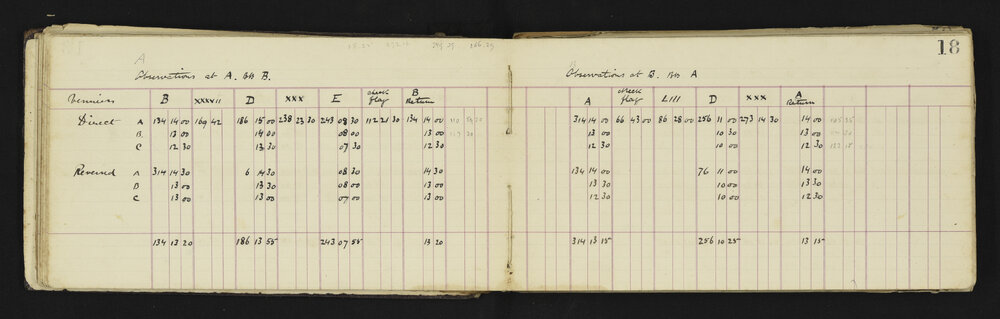 18
A
Observations at A. BS B.
Verniers B XXXVII D XXX E check flag B Return
Direct A 134 14 00 169 42 186 15 00 238 23 30 243 08 30 112 21 30 134 14 00
B 13 00 14 00 08 00 13 00
C 12 30 13 30 07 30 12 30
Reversed A 314 14 30 6 14 30 08 30 14 30
B 13 00 13 30 08 00 13 00
C 13 00 13 00 07 00 13 00
134 13 20 186 13 55 243 07 55 13 20
Observations at B. BS A
A check flag LIII D XXX A Return
314 14 00 66 43 00 86 28 00 256 11 00 273 14 30 14 00
13 00 10 30 13 00
12 30 10 30 12 30
134 14 00 76 11 00 14 00
13 30 10 00 13 30
12 30 10 00 12 30
314 13 15 256 10 25 13 15